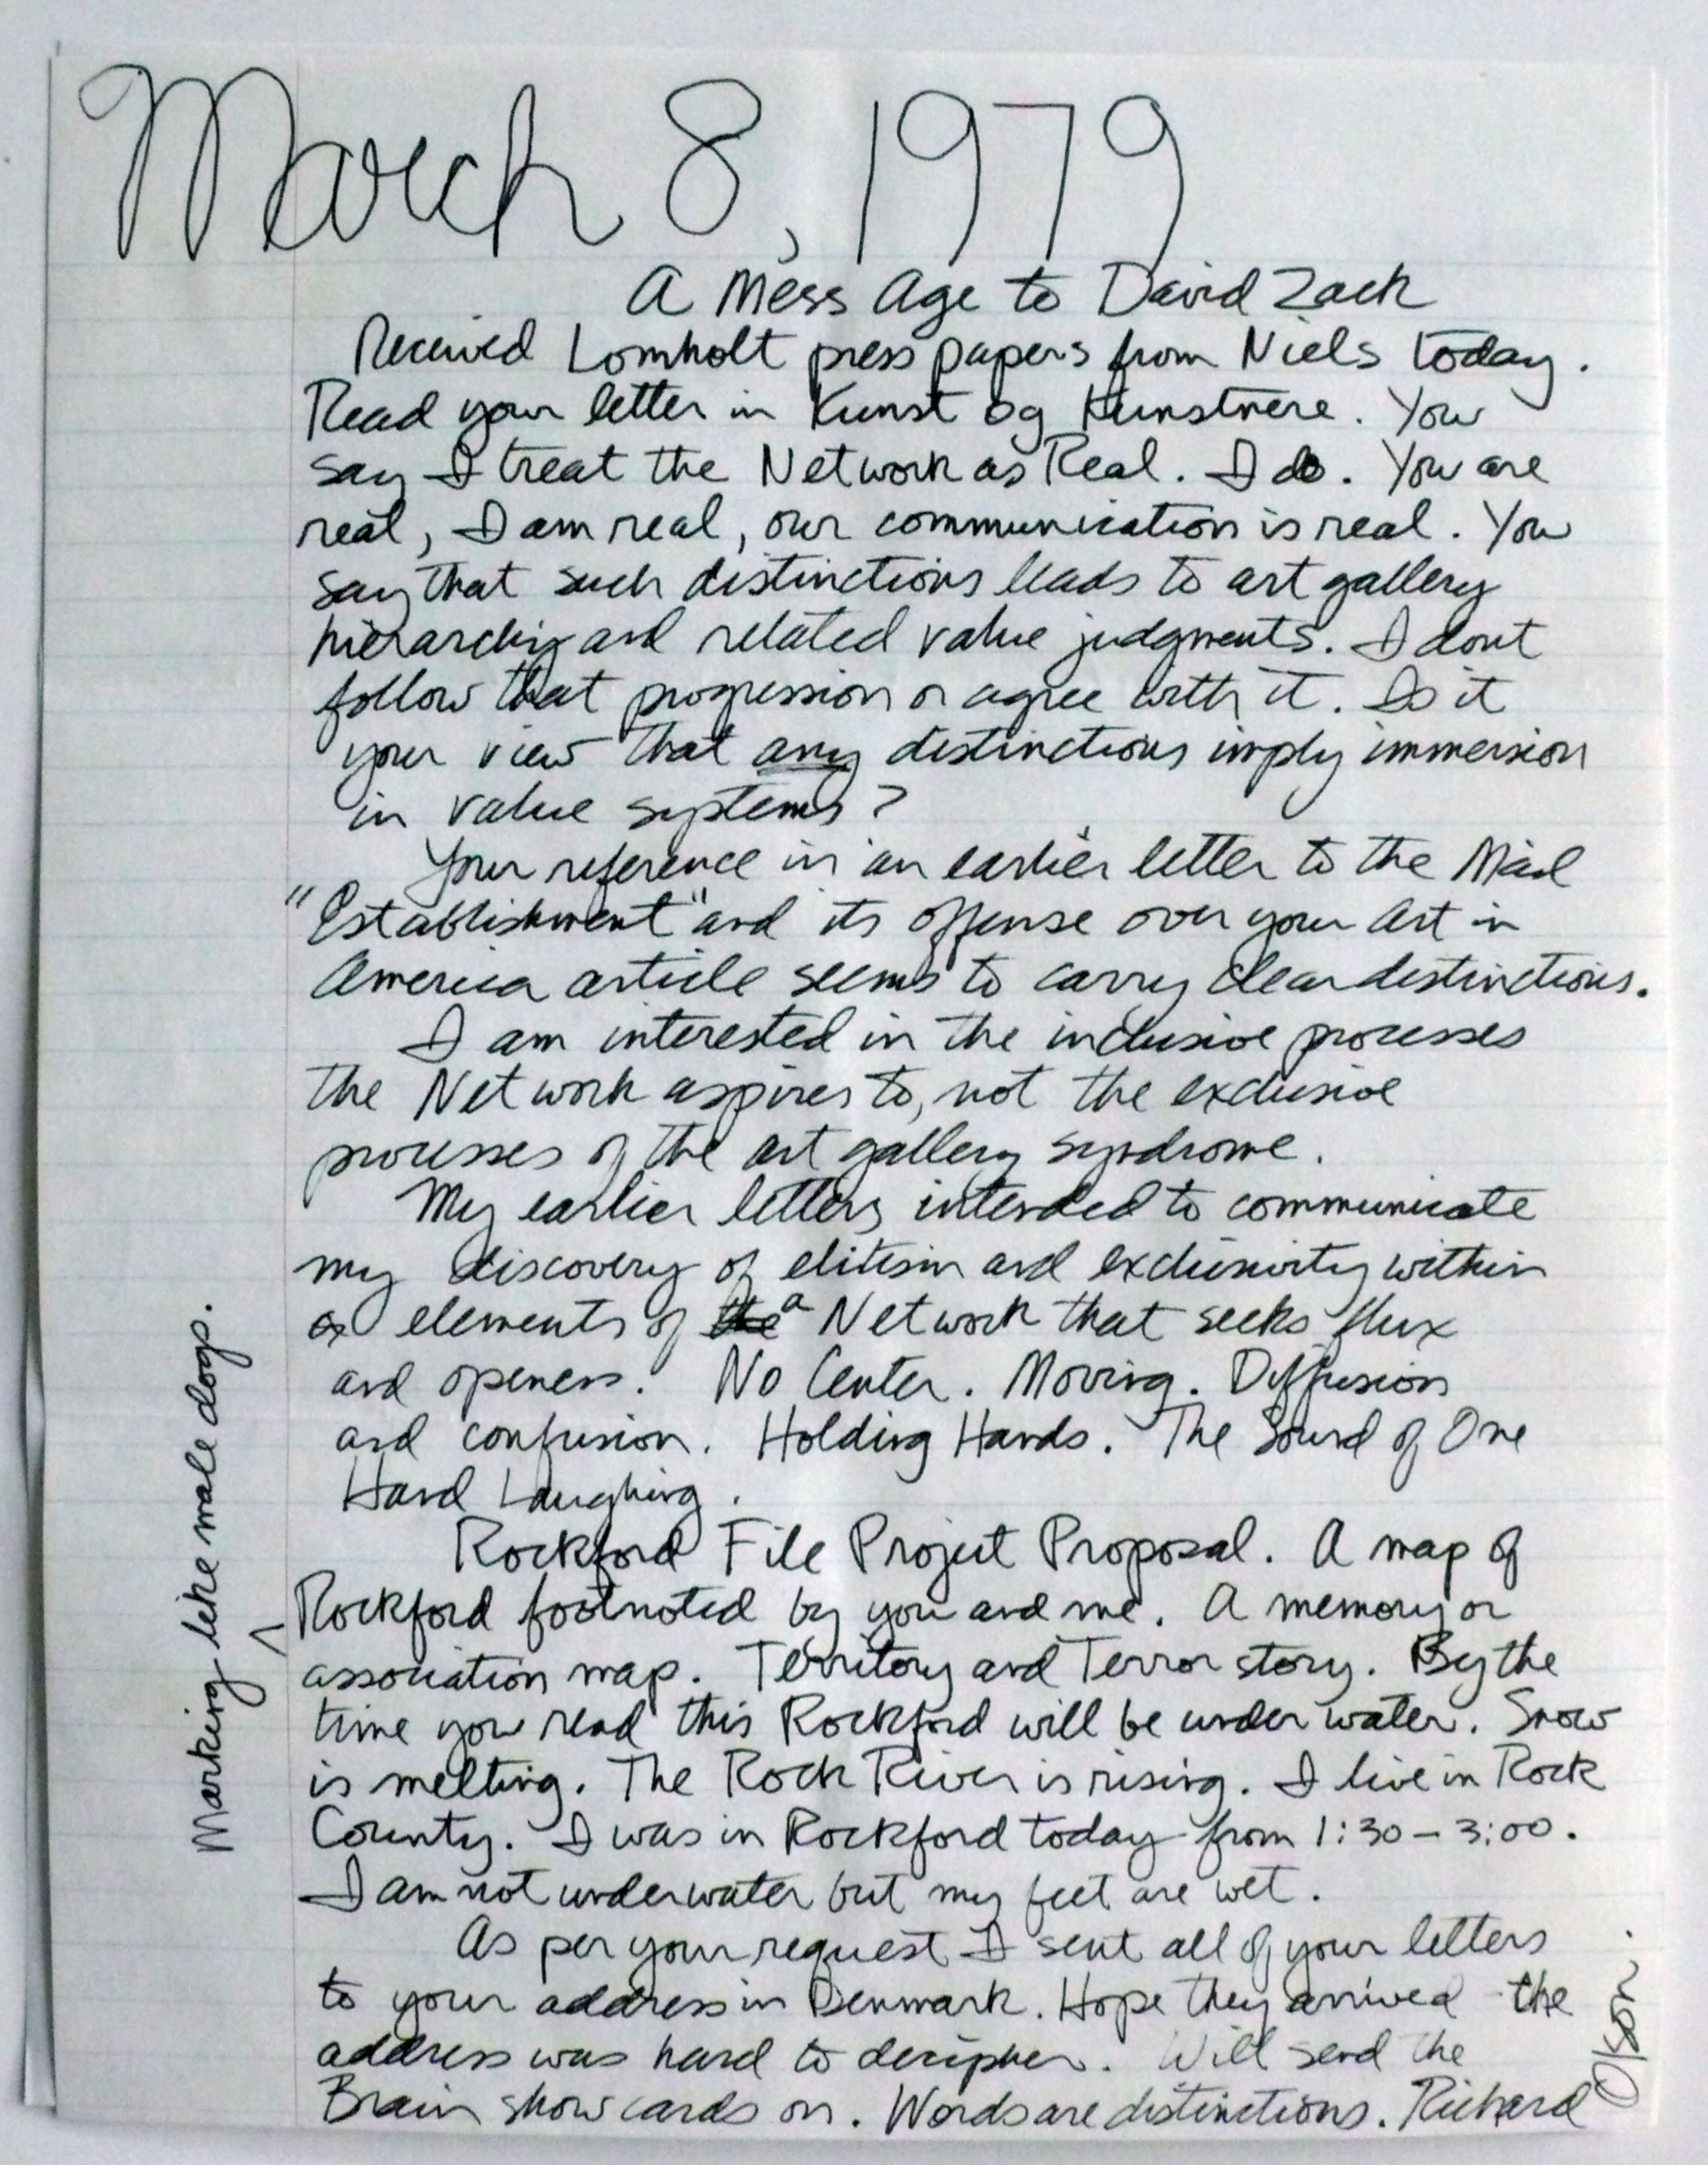 March 8, 1979
A Mess Age to David Zack
Received Lomholt press papers from Niels today.
Read your letter in Kunst og Kunstnere. You
say I treat the Network as Real. I do. You are
real, I am real, our communication is real. You
say that such distinctions leads to art gallery
hierarchy and related value judgments. I dont
follow that progression or agree with it. Is it
your view that any distinctions imply immersion
in value systems?
Your reference in an earlier letter to the Mail
"Establishment" and its offense over your Art in
America article seems to carry clear distinctions.
I am interested in the inclusive processes
the Network aspires to, not the exclusive
processes of the art gallery syndrome.
My earlier letters intended to communicate
my discovery of elitism and exclusivity within
elements of the a Network that seeks flux
and openness. No Center. Moving. Diffusion
and confusion. Holding Hands. The Sound of One
Hand Laughing.
Rockford File Project Proposal. A map of
Rockford footnoted by you and me. A memory or
association map. Territory and Terror story. By the
time you read this Rockford will be under water. Snow
is melting. The Rock River is rising. I live in Rock
County. I was in Rockford today from 1:30 - 3:00.
I am not underwater but my feet are wet.
As per your request I sent all of your letters
to your address in Denmark. Hope they arrived - the
address was hard to decipher. Will send the
Brain show cards on. Words are distinctions. Richard
Olson.
Marking like male dogs.